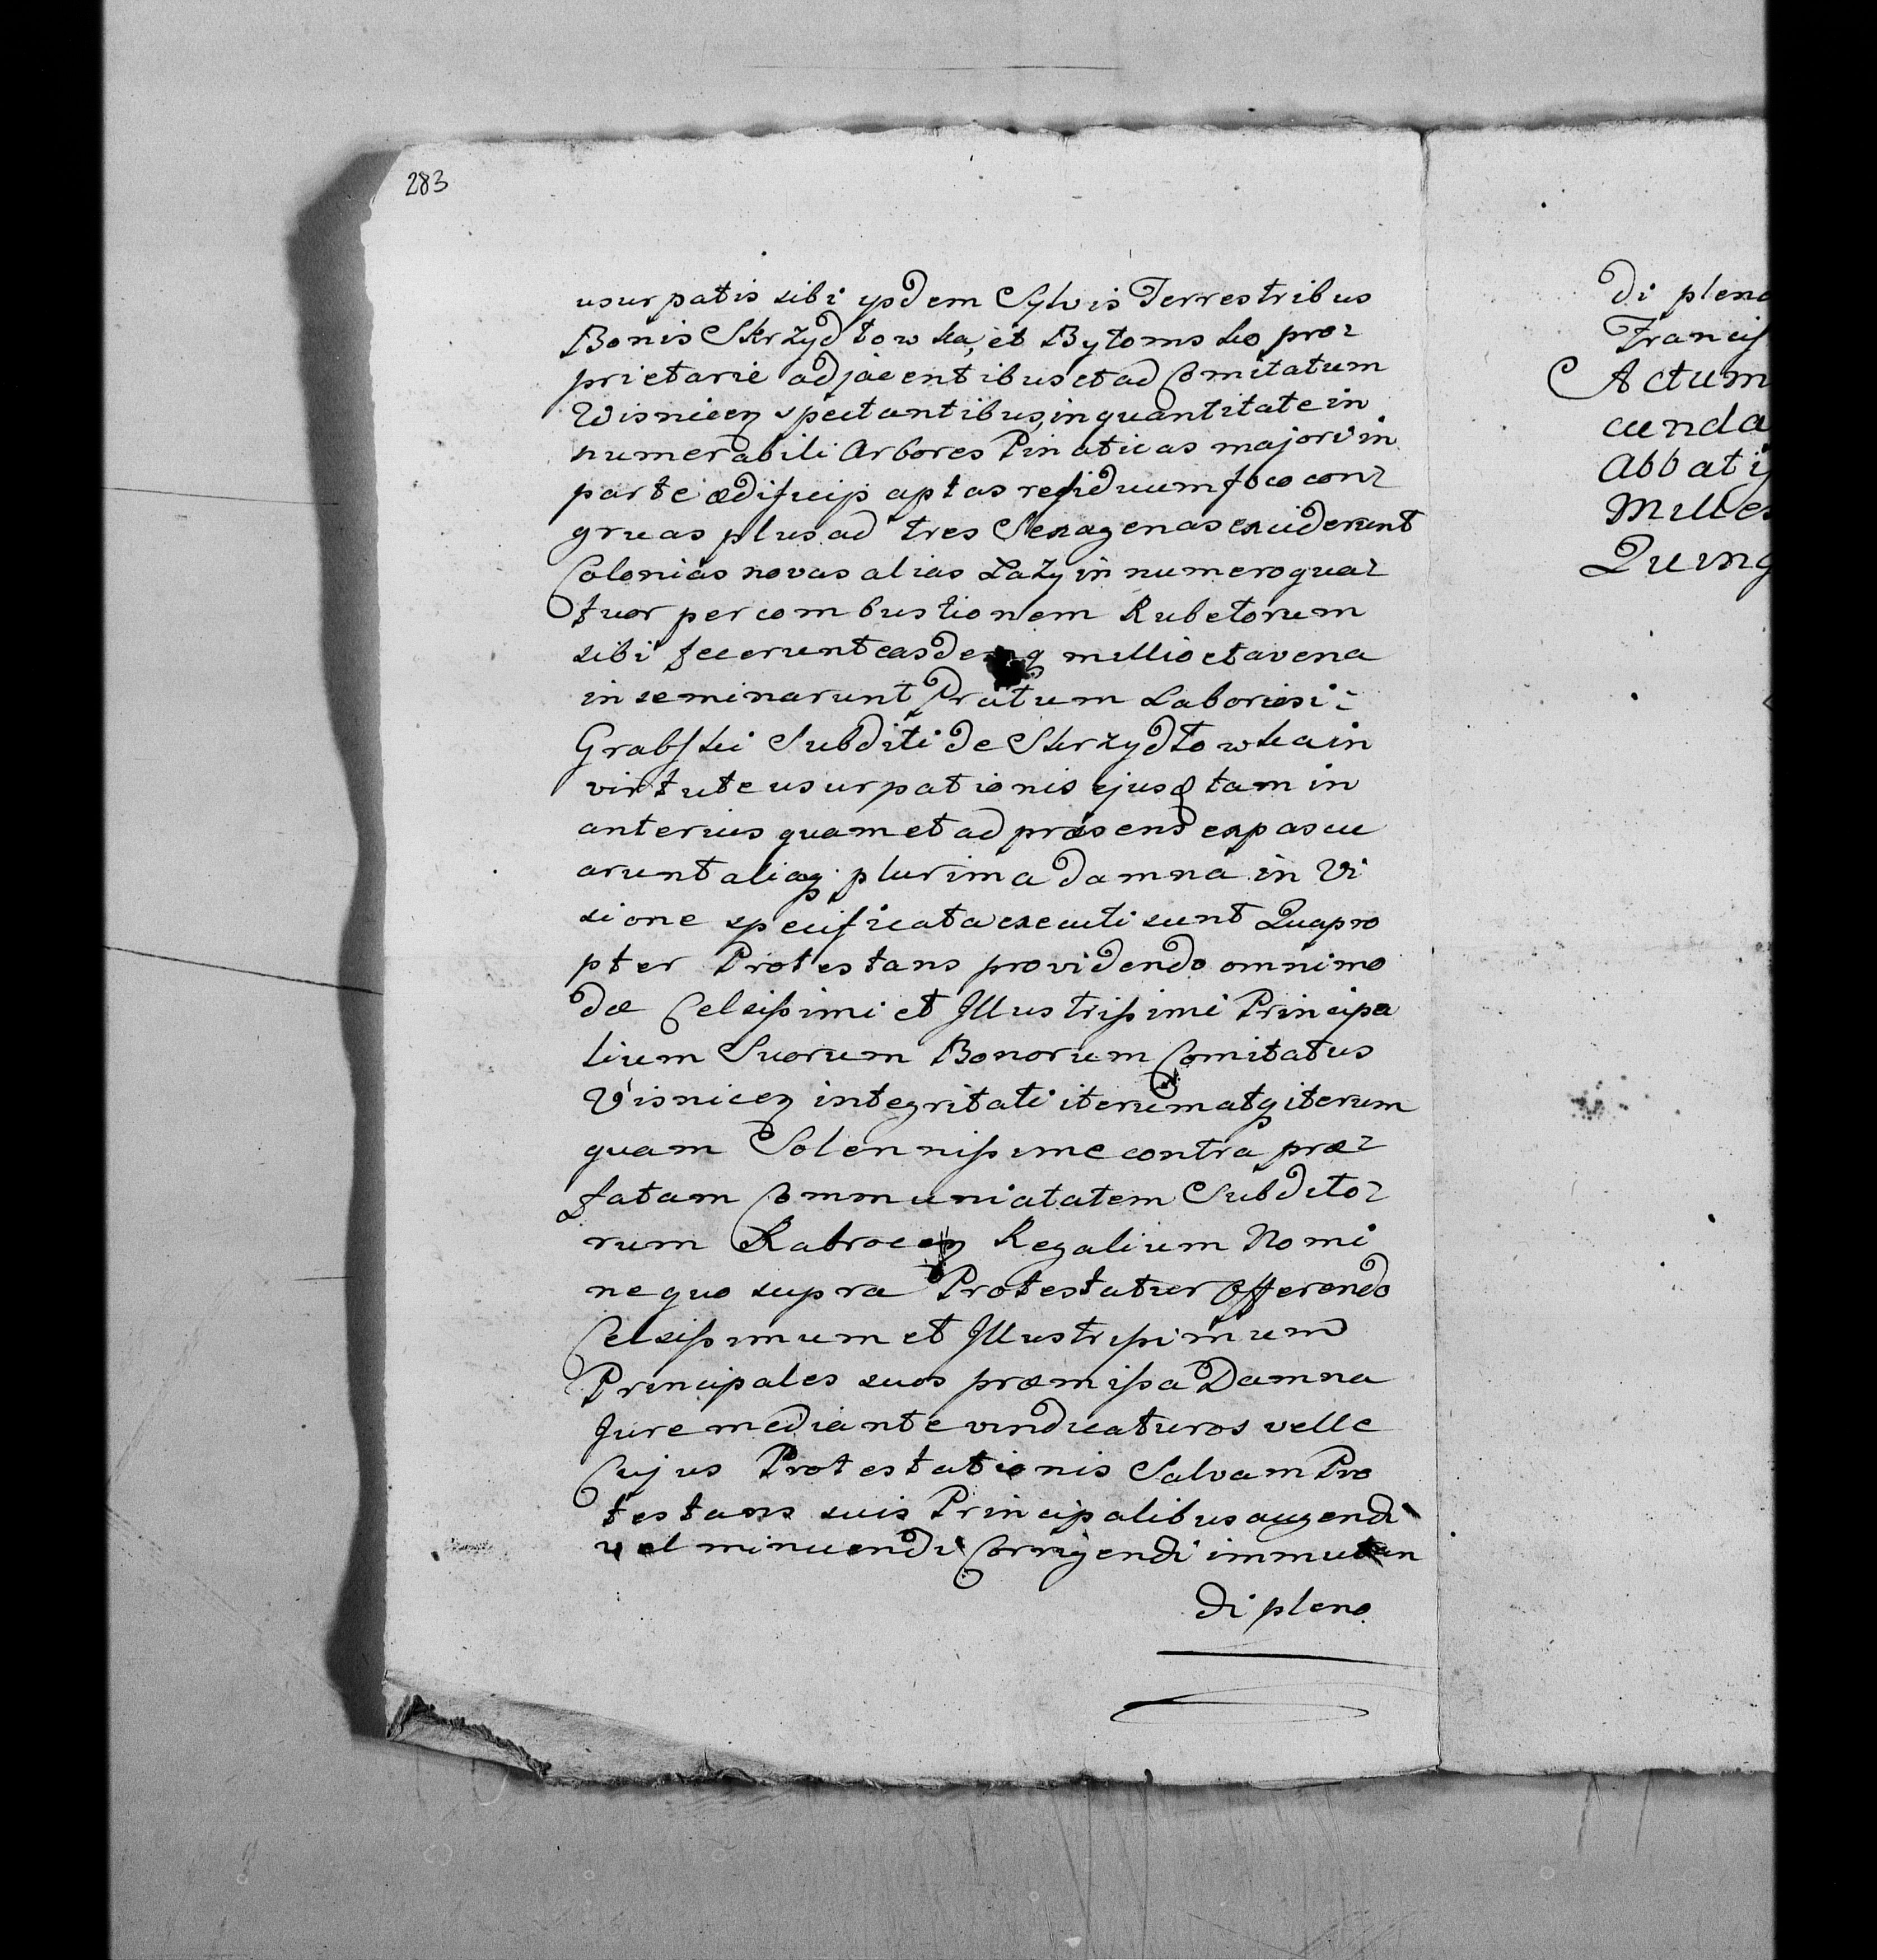 283
usurpatis sibi ipsdem Sylvis Terrestribus
Bonis Skrzydłowka, et Bytomsko pro-
prietarie adjacentibus et ad Comitatum
Wisnicen spectantibus, in quantitate in
numerabili Arbores Pinaticas majori in
parte ædificijs aptas residuum foco con-
gruas plus ad tres Sexagenas exciderunt
Colonias novas alias Łazy in numero qua-
tuor per combustionem Rubetorum
sibi fecerunt easdemq millio et avena
inseminarunt Pratum Laboriosi
Grabski Subditi de Skrzydłowka in
virtute usurpationis ejusd tam in
anterius quam et ad præsens expascu
arunt aliaq plurima damna in Vi
sione specificata executi sunt Quapro
pter Protestans providendo omnimo
dæ Celsissimi et Illustrissimi Principa
lium Suorum Bonorum Comitatus
Visnicen integritati iterum atq iterum
quam Solennissime contra præ-
fatam Communiatatem Subdito-
rum Rabrocen Regalium Nomi
ne quo supra Protestatur Offerendo
Celsissimum et Illustrissimum
Principales suos præmissa Damna
Jure mediante vindicaturos velle
Cujus Protestationis Salvam Pro
testans suis Principalibus augendi
vel minuendi Corrigendi immutan
di pleno
di pleno
Francis
Actum
cunda
Abbatis
Milles
Quing